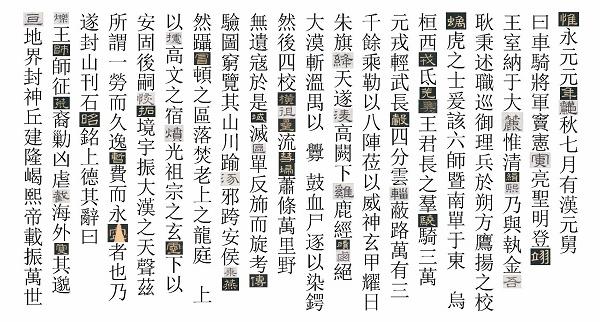 惟永元元年秋七月有漢元舅
曰車騎將軍竇憲寅亮聖明登翊
王室納于大麓惟清緝熙乃與執金吾
耿秉述職巡御理兵於朔方鷹揚之校
螭虎之士爰該六師暨南單于東 烏
桓西戎氐羌侯王君長之羣驍騎三萬
元戎輕武長轂四分雲輜蔽路萬有三
千餘乘勒以八陣莅以威神玄甲耀日
朱旗絳天遂凌高闕下雞鹿經磧鹵絕
大漠斬溫禺以 釁 鼓血尸逐以染鍔
然後四校橫徂星流彗埽蕭條萬里野
無遺寇於是域滅區單反旆而旋考傳
驗圖窮覽其山川踰涿邪跨安侯乘燕
然躡冒頓之區落焚老上之龍庭 上
以攄高文之宿憤光祖宗之玄靈下以
安固後嗣恢拓境宇振大漢之天聲茲
所謂一勞而久逸暫費而永寧者也乃
遂封山刊石昭銘上德其辭曰
鑠王師征荒裔勦凶虐截海外夐其邈
亘地界封神丘建隆嵑熙帝載振萬世